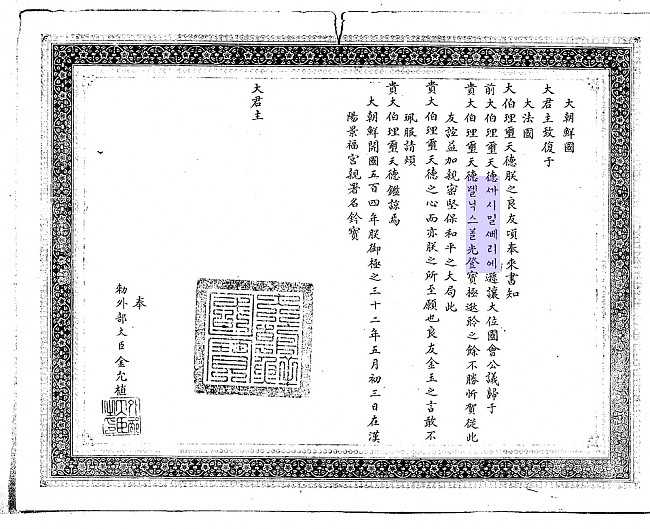 大朝鮮國
大君主致復于
大法國
大伯理璽天德朕之良友頃奉來書知
前大伯理璽天德싸시밀베리에遜讓大位國會公議歸于
貴大伯理璽天德렐닉스뽈光登寶極遜於之餘不勝忻賀從此
友誼益加親密堅保和平之大局此
貴大伯理璽天德之心而亦朕之所至願也良友金玉之言敢不
珮服請頌
貴大伯理璽天德鑑諒焉
大朝鮮開國五百四年朕御極之三十二年五月初三日在漢
陽景福宮親署名鈐寶
大君主
奉
勅外部大臣金允植